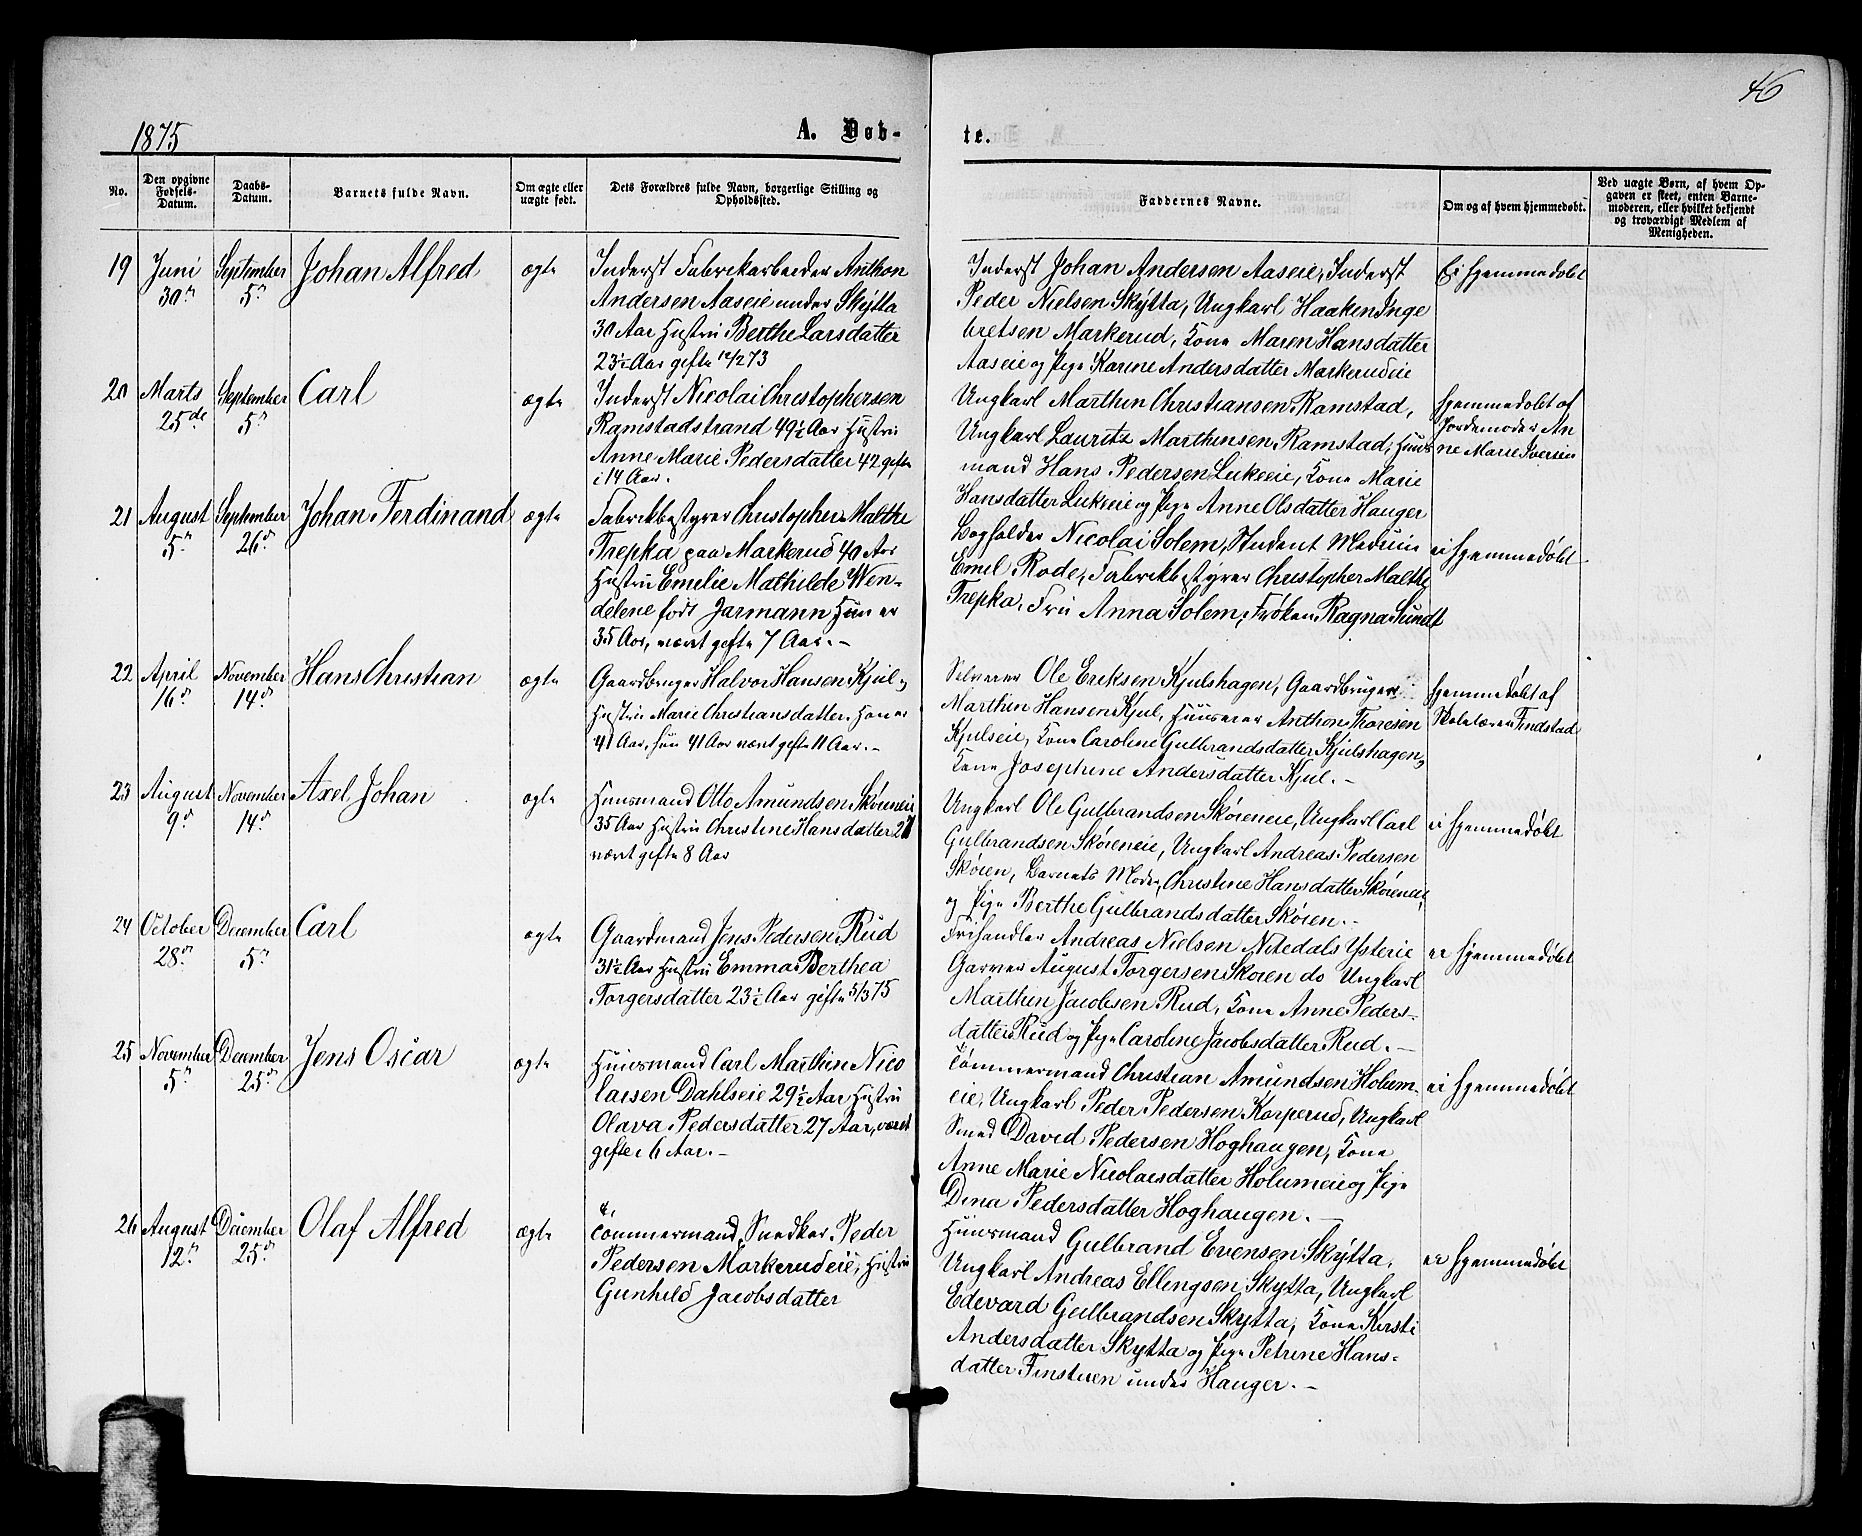 46
1875
A. Døb-
te.
No.
Den opgivne Fødsels-Datum.
Daabs-Datum.
Barnets fulde Navn.
Om ægte eller uægte født.
Dets Forældres fulde Navn, borgerlige Stilling og Opholdssted.
Faddernes Navne.
Om og af hvem hjemmedøbt.
Ved uægte Børn, af hvem Op-
gaven er skeet, enten Barne-
moderen, eller hvilket bekjendt
og troværdigt Medlem af
Menigheden.
19 Juni 30n September 5n Johan Alfred ægte
Inderst Fabrikarbeider Anthon
Andersen Aaseie under Skÿtta
30 Aar Hustru Berthe Larsdatter
23½ Aar gifte 12/273
Inderst Johan Andersen Aaseie, Inderst
Peder Nielsen Skÿtta, Ungkarl Haaken Inge
bretsen Markerud, Kone Maren Hansdatter
Aaseie og Pige Karine Andersdatter Markerudeie
Ei hjemmedøbt
20 Marts 25de September 5n Carl ægte
Inderst Nicolai Christophersen
Ramstadstrand 49½ Aar Hustru
Anne Marie Pedersdatter 42 gifte
i 14 Aar.
Ungkarl Marthin Christiansen Ramstad,
Ungkarl Lauritz Marthinsen Ramstad, Huus
mand Hans Pedersen Lukeeie, Kone Marie
Hansdatter Lukeeie og Pige Anne Olsdatter Hauger
hjemmedøbt af
Jordemoder An
ne Marie Iversen
21 August 5n September 26n Johan Ferdinand ægte
Fabrikbestyrer Christopher Malthe
Trepka paa Markerud 40 Aar
Hustru Emilie Mathilde Wen-
delene født Jarmann Hun er
35 Aar, været gifte 7 Aar.-
Bogholder Nicolai Solem, Student Medicin
Emil Rode, Fabrikbestyrer Christopher Malthe
Trepka, Fru Anna Solem, Frøken Ragna Sundt
ei hjemmedøbt
22 April 16n November 14n Hans Christian ægte
Gaardbruger Halvor Hansen Kjul,
Hustru Marie Christiansdatter. Han er
41 Aar, hun 41 Aar været gifte 11 Aar.-
Selveier Ole Eriksen Kjulshagen, Gaardbruger
Marthin Hansen Kjul, Huuseier Anthon Thoresen
Kjulseie, Kone Caroline Gulbrandsdatter Kjulshagen,
Kone Josephine Andersdatter Kjul.-
hjemmedøbt af
Skolelærer Findstad
23 August 9n November 14n Axel Johan ægte
Huusmand Otto Amundsen Skøieneie
35 Aar Hustru Christine Hansdatter
været gifte 8 Aar
Ungkarl Ole Gulbrandsen Skøieneie, Ungkarl Carl
Gulbrandsen Skøieneie, Ungkarl Andreas Pedersen
Skøien, Barnets Moder, Christine Hansdatter Skøieneie,
og Pige Berthe Gulbrandsdatter Skøien.-
ei hjemmedøbt
24 October 28n December 5n Carl ægte
Gaardmand Jens Pedersen Rud
31½ Aar Hustru Emma Berthea
Torgersdatter 23½ Aar gifte 5/375
Frihandler Andreas Nielsen Nitedals Ysterie
Garver August Torgersen Skøien do Ungkarl
Marthin Jacobsen Rud, Kone Anne Peders-
datter Rud og Pige Caroline Jacobsdatter Rud.-
ei hjemmedøbt
25 November 5n December 25n Jens Oscar ægte
Huusmand Carl Marthin Nico
laisen Dahlseie 29½ Aar Hustru
Olava Pedersdatter 27 Aar, været
gifte i 6 Aar.-
Tømmermand Christian Amundsen Holum-
eie, Ungkarl Peder Pedersen Korperud, Ungkarl
Smed David Pedersen Hoghaugen, Kone
Anne Marie Nicolaisdatter Holumeie og Pige
Dina Pedersdatter Hoghaugen.-
ei hjemmedøbt
26 August 12n December 25n Olaf Alfred ægte
Tømmermand, Snedker Peder
Pedersen Markerudeie, Hustru
Gunhild Jacobsdatter
Huusmand Gulbrand Evensen Skÿtta,
Ungkarl Andreas Ellingsen Skÿtta, Ungkarl
Edevard Gulbrandsen Skytta, Kone Kirsti
Andersdatter Skytta og Pige Petrine Hans-
datter Finstuen under Hauger.-
ei hjemmedøbt